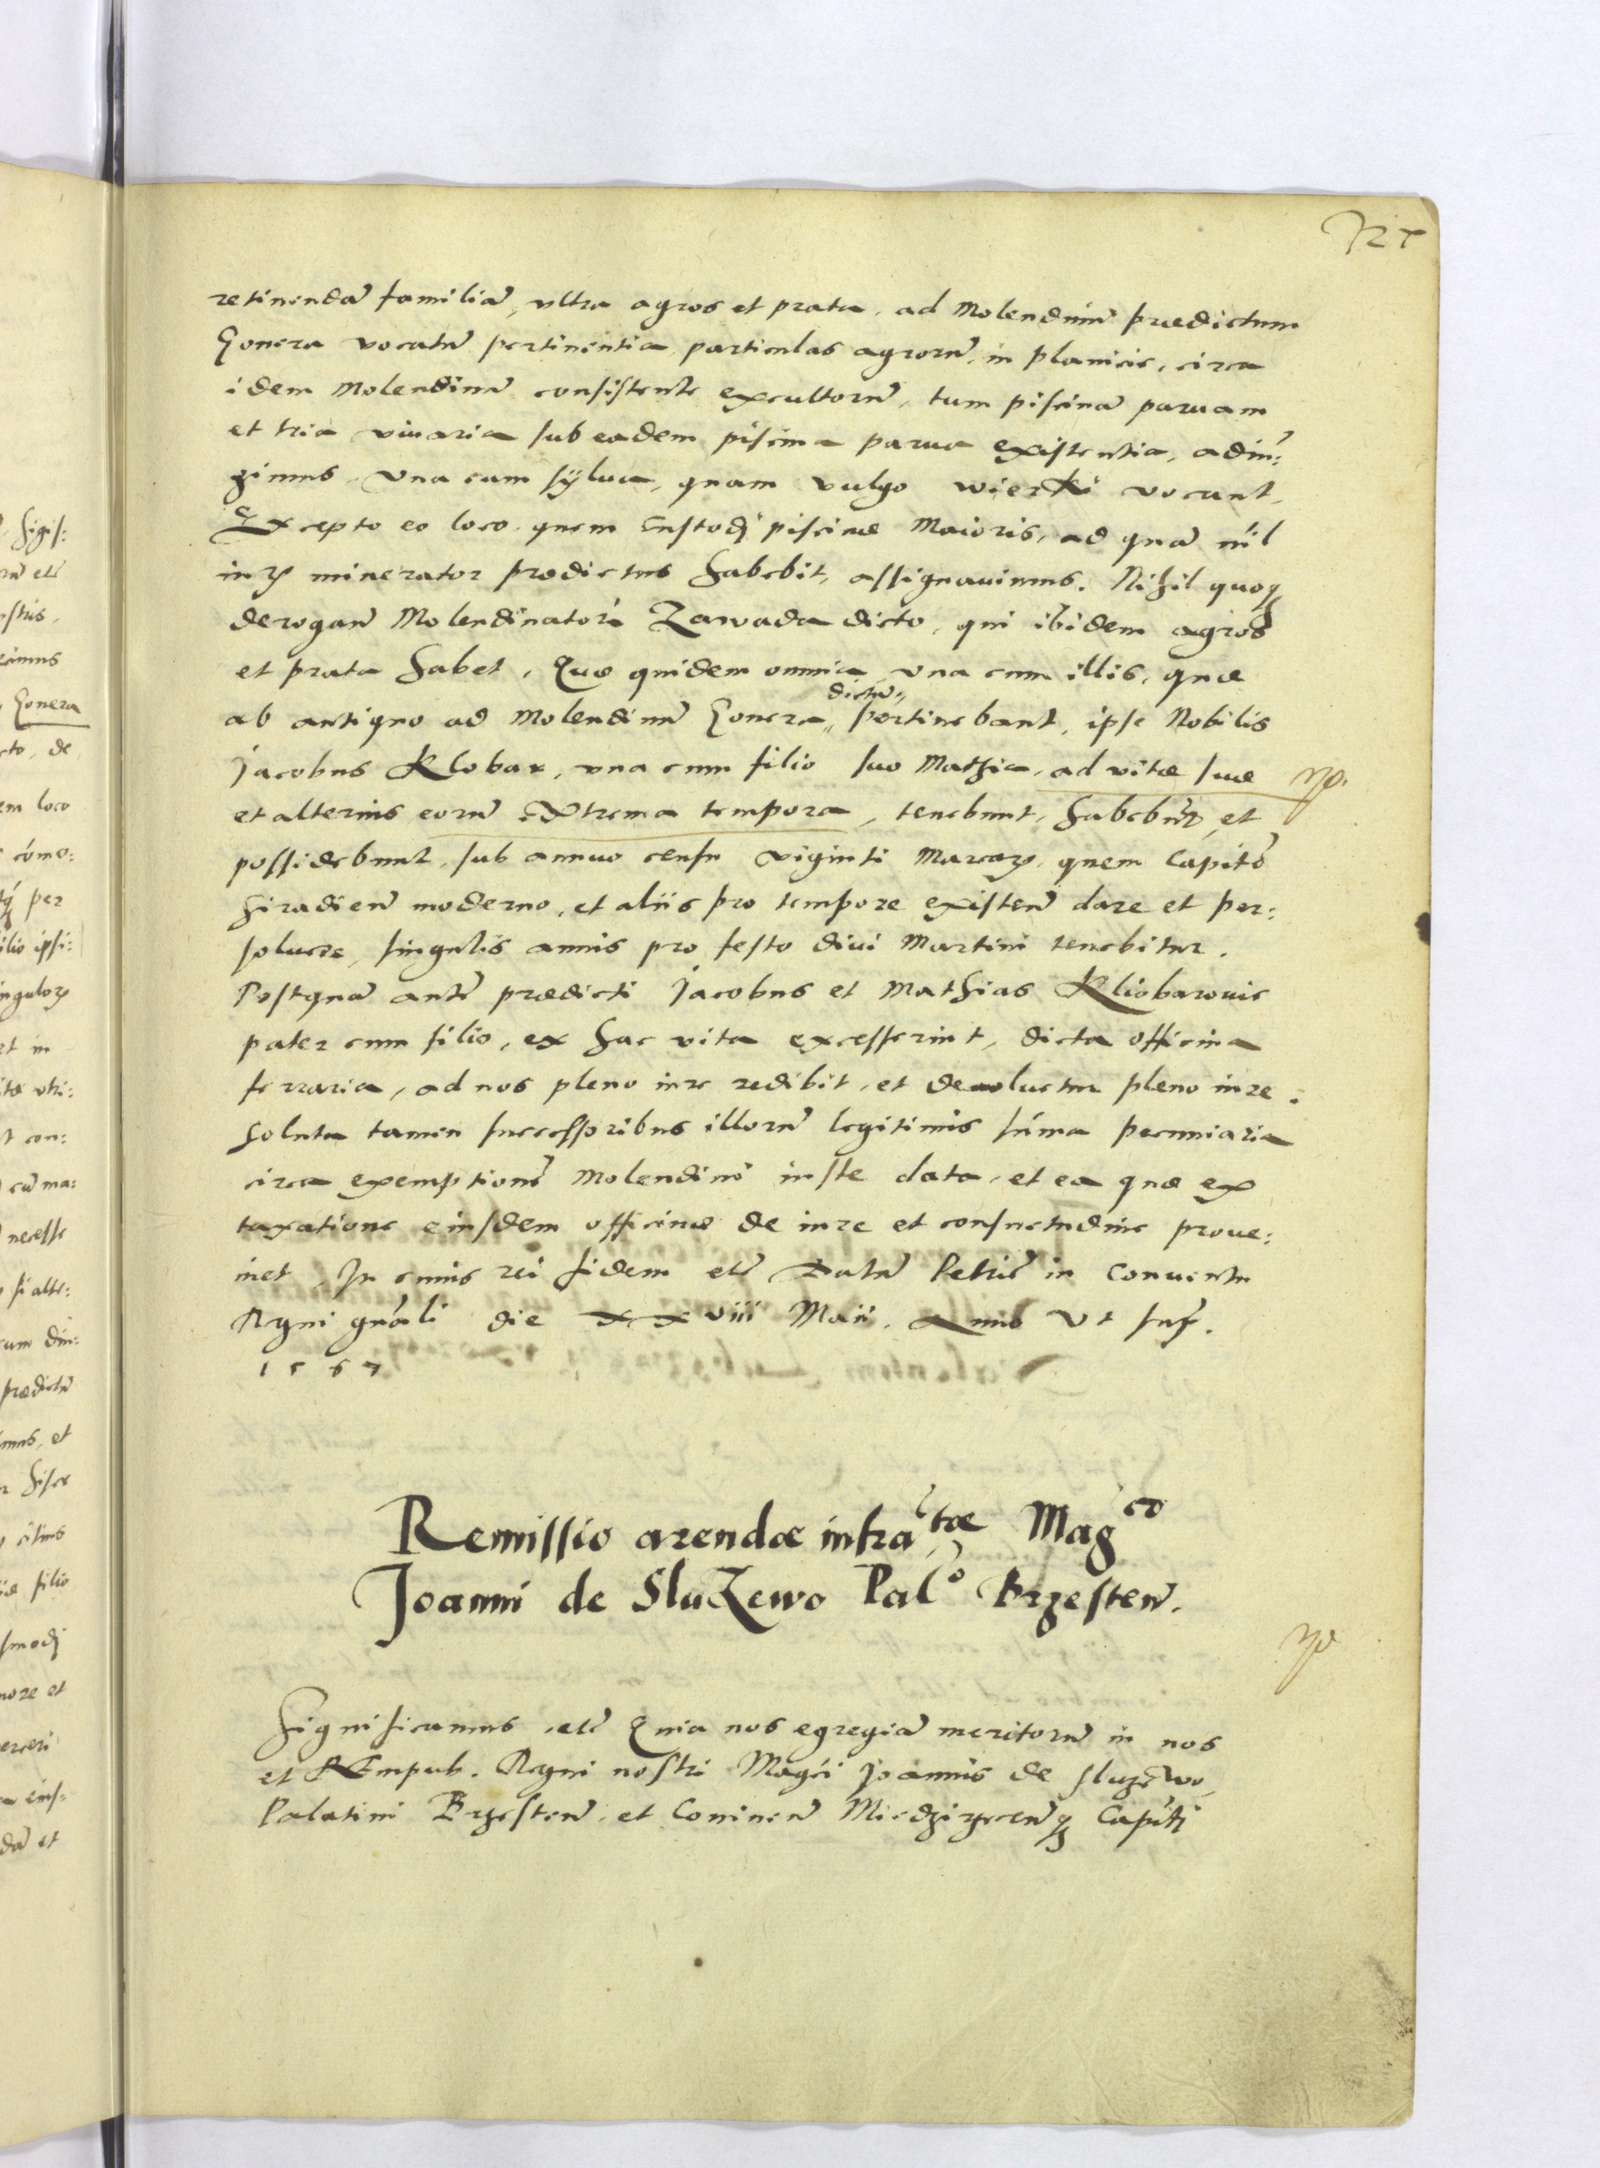 retinendā familiā, vltra agros et prata, ad Molendinū prædictum
Gonera vocatū pertinentia particulas agrorū, in planicie, circa
idem Molendinū consistente excultorū, tum piscinā paruam
et tria viuaria sub eadem piscina parua existentia, adiū:
gimus, vna cum sylua, quam vulgo wierzki vocant,
Excepto eo loco quem Custodi piscinæ Maioris, ad quā nil
iuris minerator prædictus habebit, assignauimus. Nihil quoq
derogan̄ Molendinatori Zawada dicto, qui ibidem agros
et prata habet. Quæ quidem omnia vna cum illis, quæ
dictū
ab antiquo ad Molendinū Gonera pertinebant, ipse Nobilis
Jacobus Klobar, vna cum filio suo Mathia, ad vitæ suæ
et alterius eorū extrema tempora, tenebunt, habebūt, et
possidebunt, sub annuo censu viginti Marcarum, quem Capitō
Siradien̄ moderno, et aliis pro tempore existen̄ dare et per:
soluere, singulis annis pro festo diui Martini tenebitur.
Postquā autē prædicti Jacobus et Mathias Kliobarowic
pater cum filio, ex hac vita excesserint, dicta officina
ferraria, ad nos pleno iure redibit, et deuoluetur pleno iure.
Soluta tamen successoribus illorū legitimis sūma pecuniaria
circa exemptionē Molendini iuste data, et ea quæ ex
taxatione eiusdem officinæ de iure et consuetudine proue:
niet. In cuius rei fidem etc̄ Datū Petric̄ in Conuentu
Regni gnāli die XXviii Maii. Anno Vt supr.
1567
Remissio arendæ infrātæ Magco
Joanni de SluZewo Palo Brzesten̄.
Significamus, etc̄ Quia nos egregiā meritorū in nos
et REmpub. Regni nostri Magci Joannis de Sluzewo,
Palatini Brzesten̄, et Coninen̄ Miedzirzecen̄q Capiti